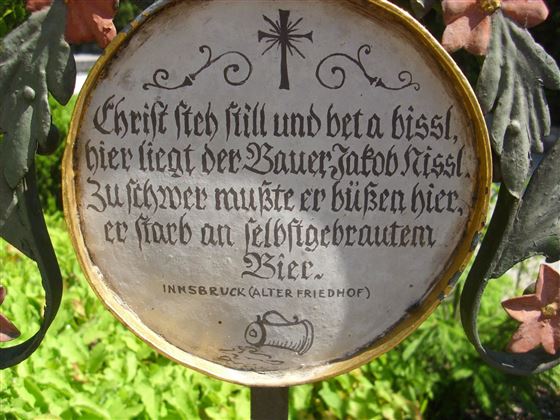 Christ steh still und bet a bissl,
hier liegt der Bauer Jakob Nissl.
Zu schwer mußte er büßen hier,
er starb an selbstgebrautem
Bier.
INNSBRUCK (ALTER FRIEDHOF)